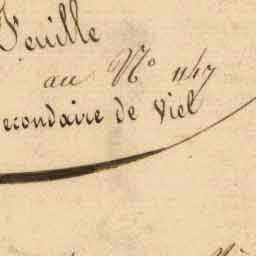 Feuille
au N° 1147
econdaire de Viel